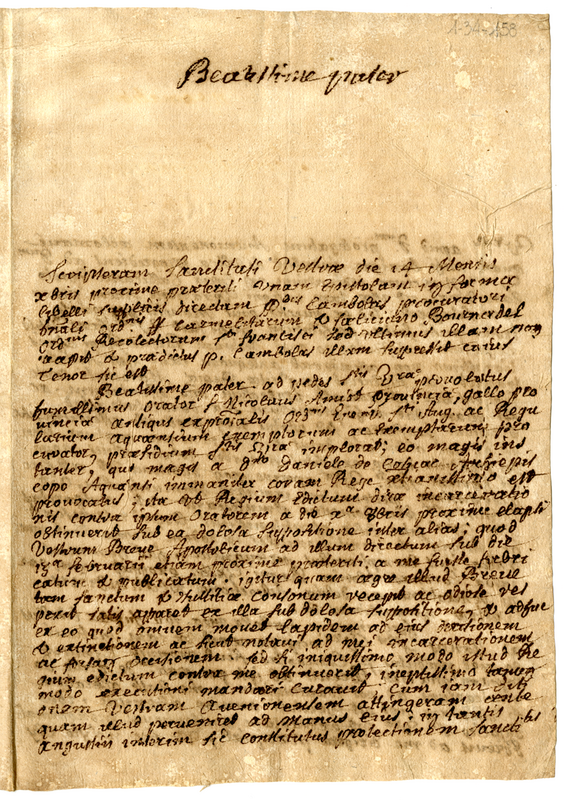 1-34-458
Beatissime pater
Scripseram Sanctitati Vestræ die 14 Mensis
xbris proxime præteriti Unam Epistolam in forma
libelli supplicis directam p. Cambolas procuratori
Carmelitarum & feliciano
Ordinis Recolectorum sti francisci sed ultimus illam non
& prædictus p. Cambolas illam suppressit cuius
Tenor sic est
Beatissime pater. ad pedes Stis Vræ provolutus
humillimus Orator f. Nicolaus Provincia, gallo pro
vincia antiquus exprovialis Ord. sti Aug. ac Regu
larium aquensium Exemptorum ac exemptarum pro
curator, præsidium Stis Vræ implorat; eo magis ins
tanter, quo magis a dno Daniele de Cosnac Archiepis
copo Aquensi immaniter coram Rege xtianissimo est
provocatus; ita ut Regium Edictum diræ incarceratio
nis contra ipsum Oratorem a die xa xbris proxime elapsi
obtinuerit sub ea dolosa suppositione inter alias; quod
Vestrum Breve Apostolicum ad illum directum sub die
februarii etiam proxime præteriti a me fuisse fabri
catum & publicatum. igitur quam ægre illud Breve
tam sanctum & Justitiæ consonum recepit ac odiose res
perit satis apparet ex illa sub dolosa suppositione, & adhuc
ex eo quod omnem movet lapidem ad eius
& extinctionem ac sicut notavi ad mei incarcerationem
ac sed si iniquissimo modo istud Re
gium edictum contra me obtinuerit; ineptissimo tamen
modo executioni mandari curavit. Cum iam diti
onem Vestram Avenionensem attingeram ante
quam illud perveniret ad manus eius; in tantis
angustiis interim sic constitutus protectionem Sanctitatis